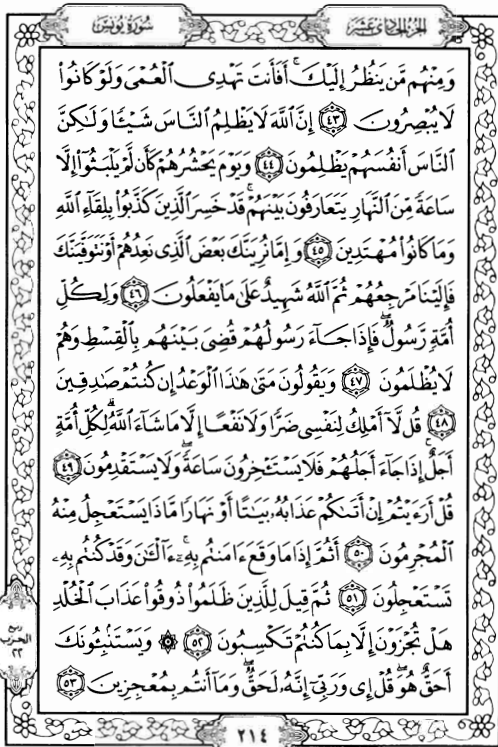 سُورَةُ يُونُسَ الجُزْءُ الحَادِي عَشَرَ
وَمِنْهُم مَّن يَنظُرُ إِلَيْكَ ۚ أَفَأَنتَ تَهْدِى الْعُمْىَ وَلَوْ كَانُوا۟
لَا يُبْصِرُونَ ٤٣ إِنَّ اللَّهَ لَا يَظْلِمُ النَّاسَ شَيْـًٔا وَلَـٰكِنَّ
النَّاسَ أَنفُسَهُمْ يَظْلِمُونَ ٤٤ وَيَوْمَ يَحْشُرُهُمْ كَأَن لَّمْ يَلْبَثُوٓا۟ إِلَّا
سَاعَةً مِّنَ النَّهَارِ يَتَعَارَفُونَ بَيْنَهُمْ ۚ قَدْ خَسِرَ الَّذِينَ كَذَّبُوا۟ بِلِقَآءِ اللَّهِ
وَمَا كَانُوا۟ مُهْتَدِينَ ٤٥ وَإِمَّا نُرِيَنَّكَ بَعْضَ الَّذِى نَعِدُهُمْ أَوْ نَتَوَفَّيَنَّكَ
فَإِلَيْنَا مَرْجِعُهُمْ ثُمَّ اللَّهُ شَهِيدٌ عَلَىٰ مَا يَفْعَلُونَ ٤٦ وَلِكُلِّ
أُمَّةٍ رَّسُولٌ ۖ فَإِذَا جَآءَ رَسُولُهُمْ قُضِىَ بَيْنَهُم بِالْقِسْطِ وَهُمْ
لَا يُظْلَمُونَ ٤٧ وَيَقُولُونَ مَتَىٰ هَـٰذَا الْوَعْدُ إِن كُنتُمْ صَـٰدِقِينَ
٤٨ قُل لَّآ أَمْلِكُ لِنَفْسِى ضَرًّا وَلَا نَفْعًا إِلَّا مَا شَآءَ اللَّهُ ۗ لِكُلِّ أُمَّةٍ
أَجَلٌ ۚ إِذَا جَآءَ أَجَلُهُمْ فَلَا يَسْتَـْٔخِرُونَ سَاعَةً ۖ وَلَا يَسْتَقْدِمُونَ ٤٩
قُلْ أَرَءَيْتُمْ إِنْ أَتَىٰكُمْ عَذَابُهُۥ بَيَـٰتًا أَوْ نَهَارًا مَّاذَا يَسْتَعْجِلُ مِنْهُ
الْمُجْرِمُونَ ٥٠ أَثُمَّ إِذَا مَا وَقَعَ ءَامَنتُم بِهِۦٓ ۚ ءَآلْـَٔـٰنَ وَقَدْ كُنتُم بِهِۦ
تَسْتَعْجِلُونَ ٥١ ثُمَّ قِيلَ لِلَّذِينَ ظَلَمُوا۟ ذُوقُوا۟ عَذَابَ الْخُلْدِ
هَلْ تُجْزَوْنَ إِلَّا بِمَا كُنتُمْ تَكْسِبُونَ ٥٢ ۞ وَيَسْتَنۢبِـُٔونَكَ
أَحَقٌّ هُوَ ۖ قُلْ إِى وَرَبِّىٓ إِنَّهُۥ لَحَقٌّ ۖ وَمَآ أَنتُم بِمُعْجِزِينَ ٥٣
ربع
الحزب
٢٢
٢١٤